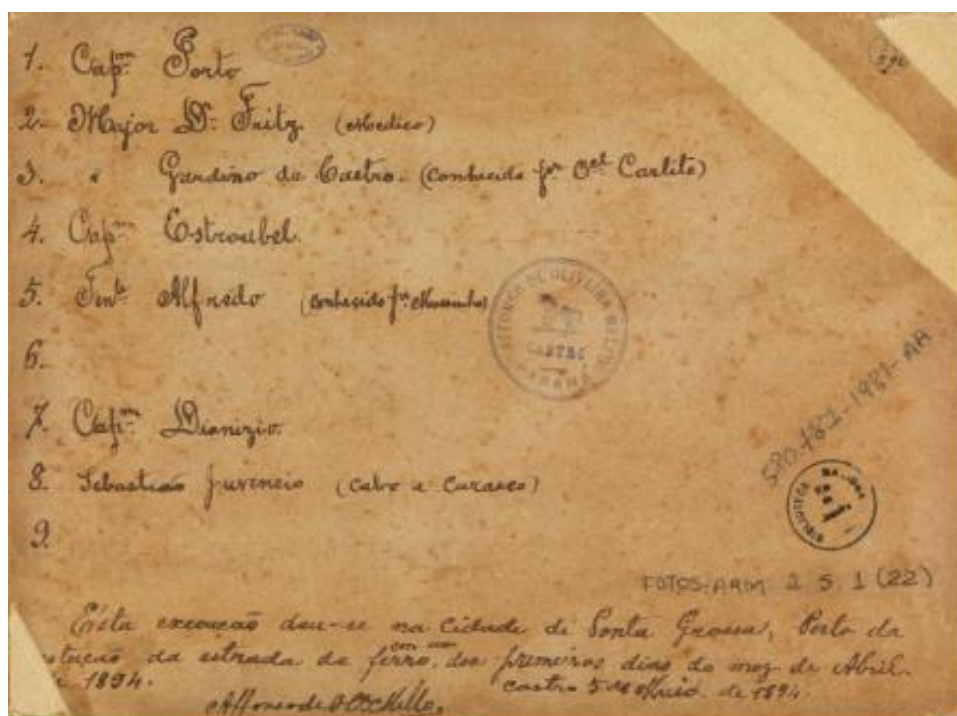 1. Capᵐ Porto
2. Major Dr. Fritz. (Medico)
3. " Gardino de Castro. (Conhecido pr Cel Carlito)
4. Capᵐ Estroubel.
5. Tente Alfredo (conhecido pr
6.
7. Capᵐ Dionizio.
8. Sebastião Juvencio (Cabo e Carasco)
9.
AFFONSO DE OLIVEIRA MELLO
CASTRO
PARANÁ
SPO.182-1981-AA
BIBLIOTECA
FOTOS-ARM. 2.5.1(22)
Esta execução deu-se na Cidade de Ponta Grossa, Perto da
estação da estrada de ferro, em um dos primeiros dias do mez de Abril
de 1894. Castro 5 de Maio de 1894.
Affonso de O Mello.